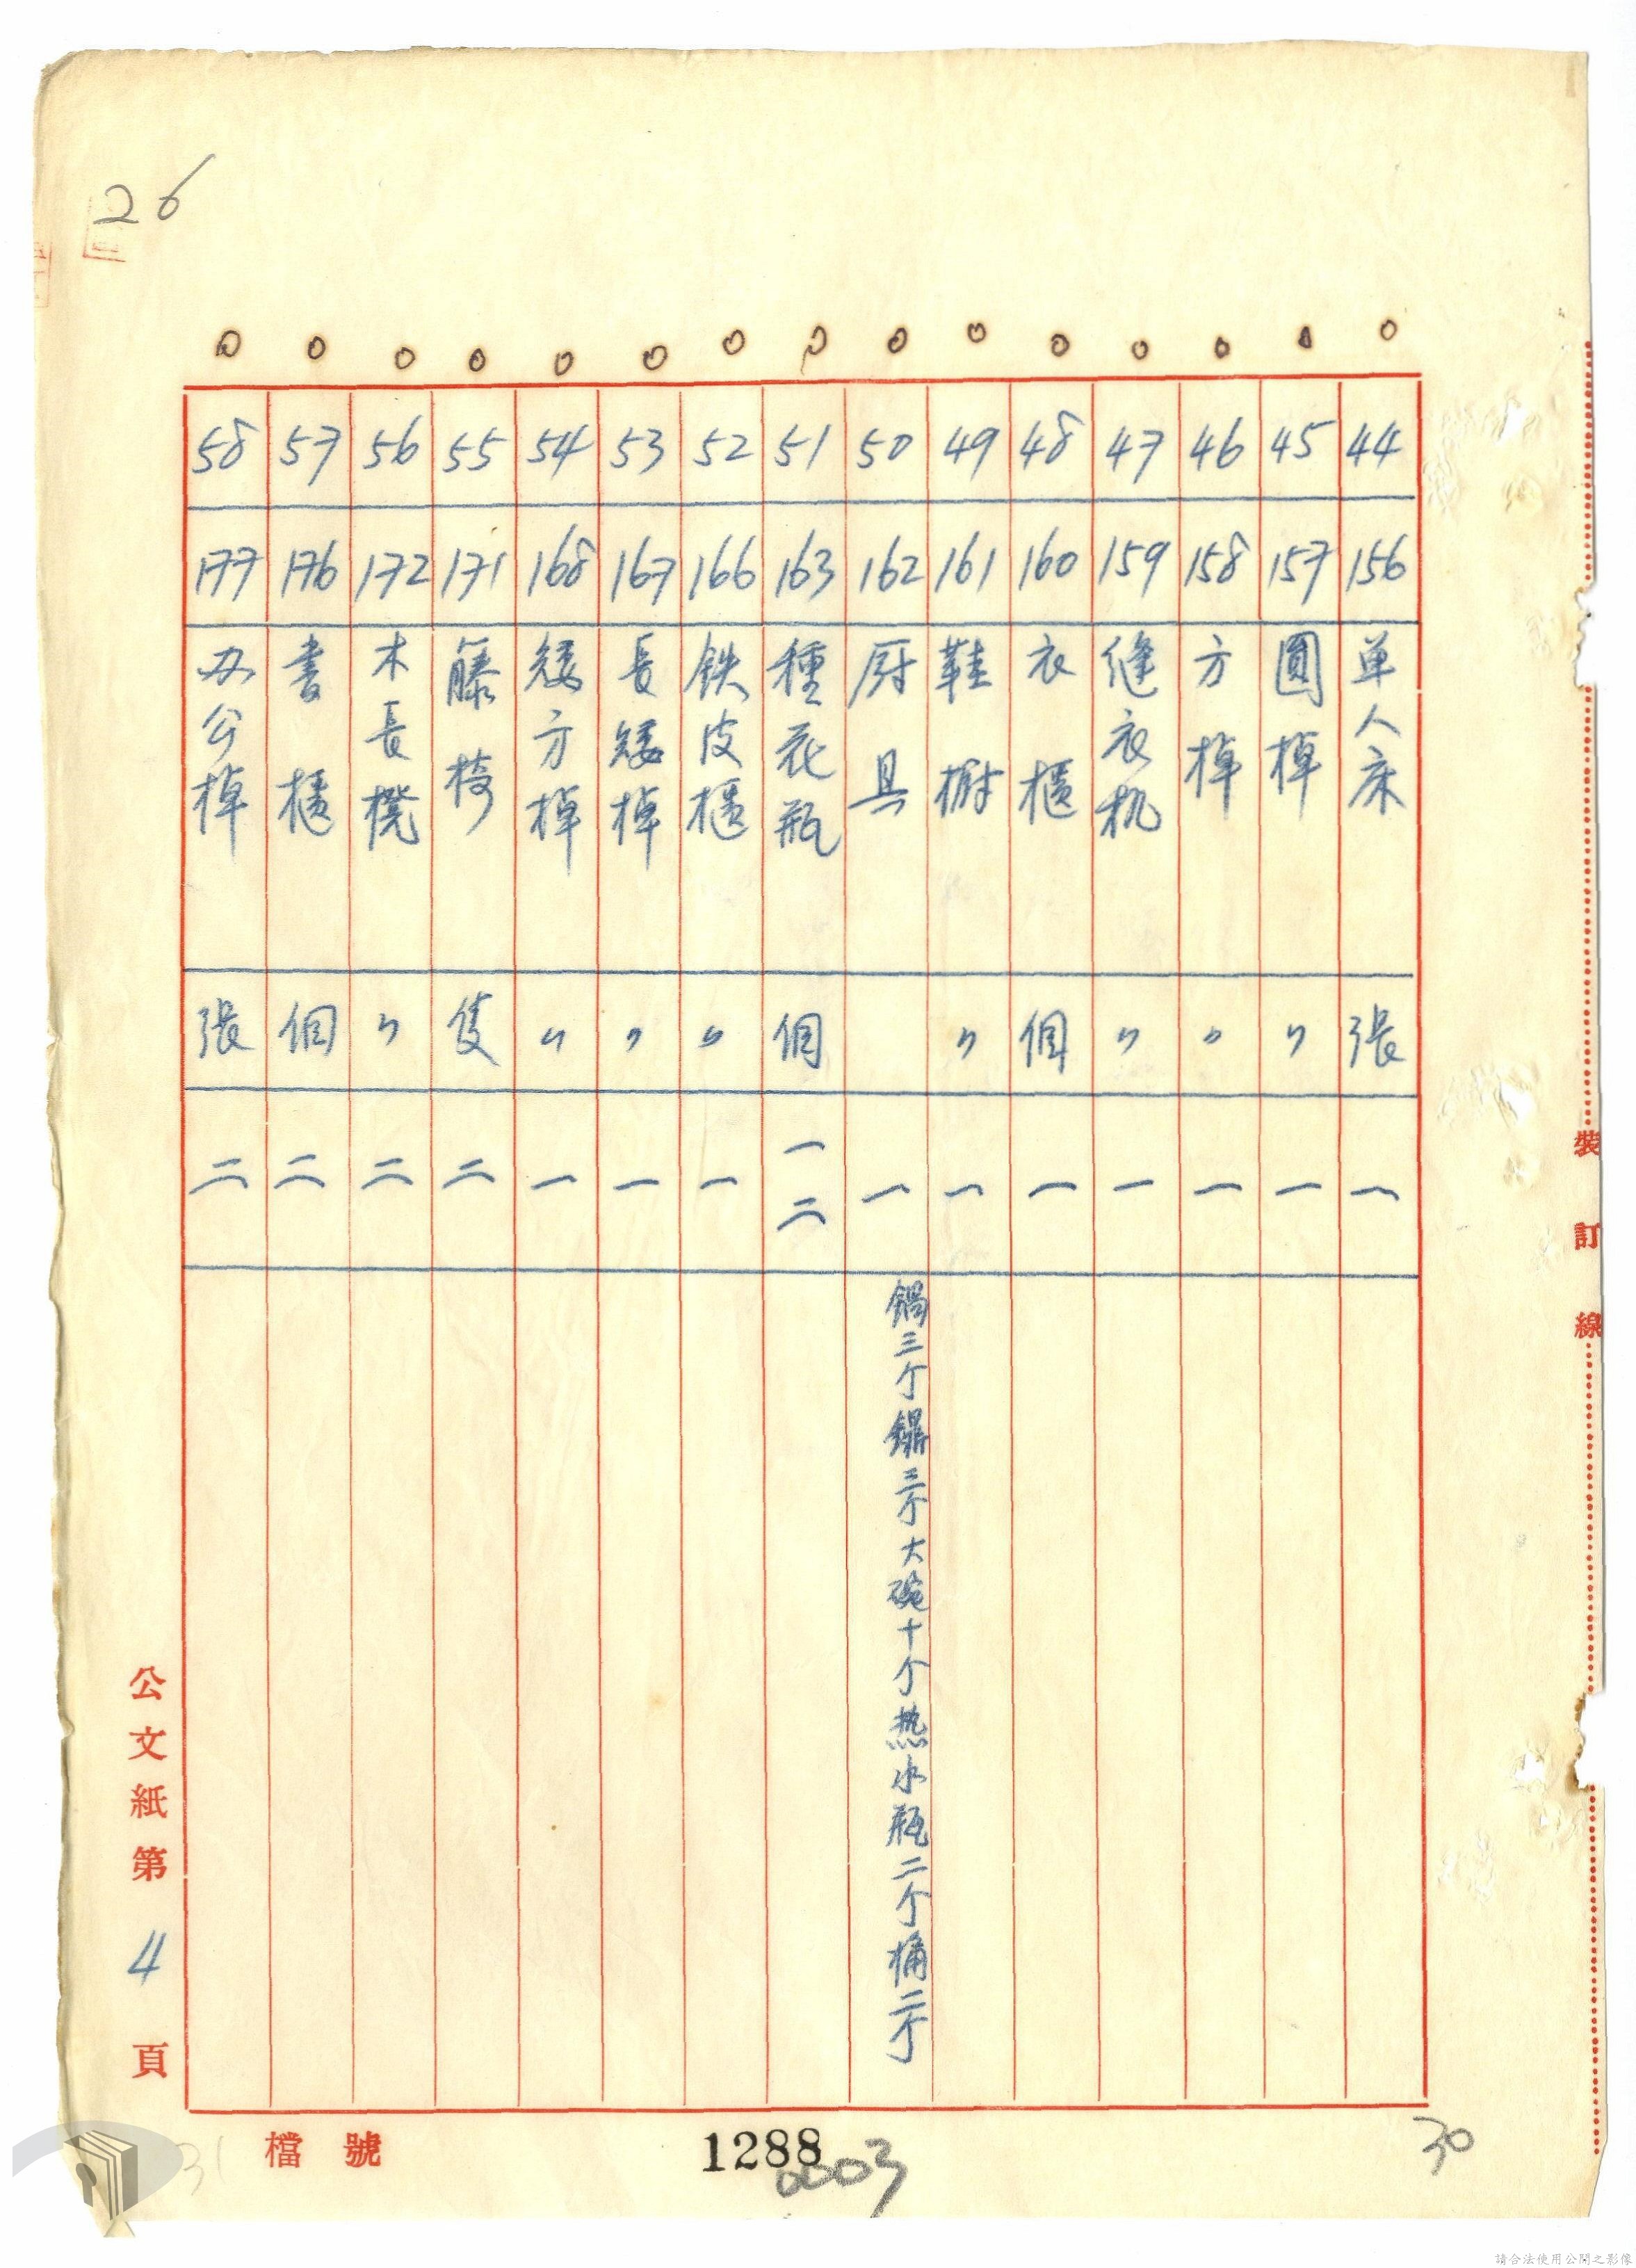 26
44 156 单人床 張 一
45 157 圓棹 〃 一
46 158 方棹 〃 一
47 159 缝衣机 〃 一
48 160 衣櫃 個 一
49 161 鞋橱 〃 一
50 162 厨具 一 鍋三个 鐤三个 大碗十个 热水瓶二个 桶二个
51 163 種花瓶 個 一二
52 166 铁皮櫃 〃 一
53 167 長矮棹 〃 一
54 168 矮方棹 〃 一
55 171 藤椅 隻 二
56 172 木長櫈 〃 二
57 176 書櫃 個 二
58 177 办公棹 張 二
裝訂線
公文紙第 4 頁
檔號
1288
0003
30
31
請合法使用公開之影像